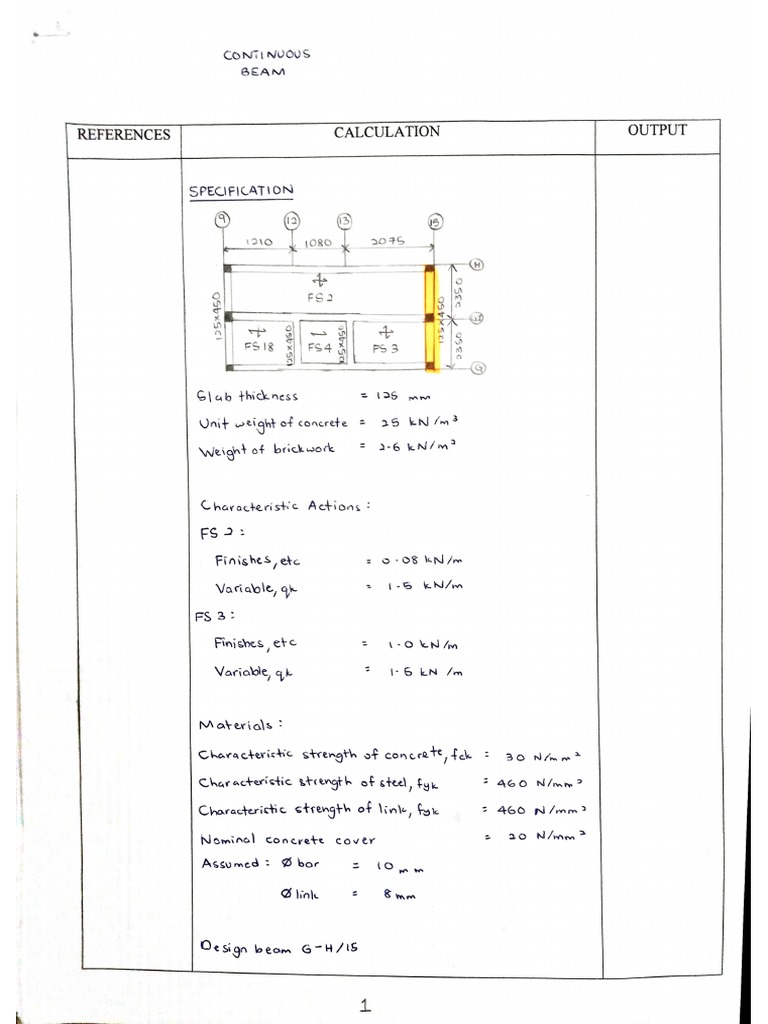 CONTINUOUS
BEAM
REFERENCES CALCULATION OUTPUT
SPECIFICATION
9 12 13 15
1210 1080 2075
H
FS2
2350
125x450
125x450
FS18 125x450 FS4 125x450 FS3
2350
G
Slab thickness = 125 mm
Unit weight of concrete = 25 kN/m³
Weight of brickwork = 2.6 kN/m²
Characteristic Actions:
FS 2:
Finishes, etc = 0.08 kN/m
Variable, qk = 1.5 kN/m
FS 3:
Finishes, etc = 1.0 kN/m
Variable, qk = 1.5 kN/m
Materials:
Characteristic strength of concrete, fck = 30 N/mm²
Characteristic strength of steel, fyk = 460 N/mm²
Characteristic strength of link, fyk = 460 N/mm²
Nominal concrete cover = 20 N/mm²
Assumed: Ø bar = 10 mm
Ø link = 8 mm
Design beam G-H/15
1